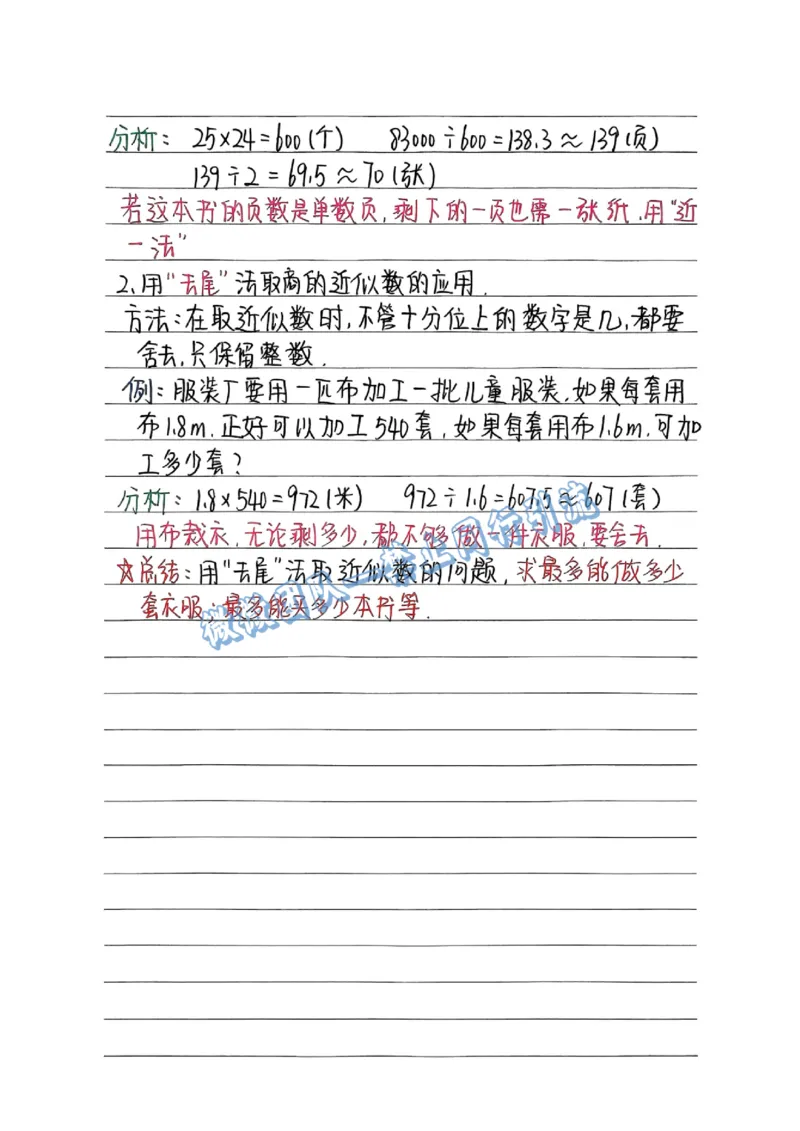 分析：25×24=600(个)  83000÷600=138.3≈139(页)
139÷2=69.5≈70(张)
若这本书的页数是单数页,剩下的一页也需一张纸.用"近
一法"
2.用"去尾"法取商的近似数的应用.
方法:在取近似数时,不管十分位上的数字是几,都要
舍去,只保留整数.
例:服装厂要用一匹布加工一批儿童服装.如果每套用
布1.8m.正好可以加工540套,如果每套用布1.6m.可加
工多少套?
分析:1.8×540=972(米)  972÷1.6=607.5≈607(套)
用布裁衣,无论剩多少,都不够做一件衣服,要舍去.
☆总结:用"去尾"法取近似数的问题,求最多能做多少
套衣服,最多能买多少本书等.
微微团队一套正网行引流